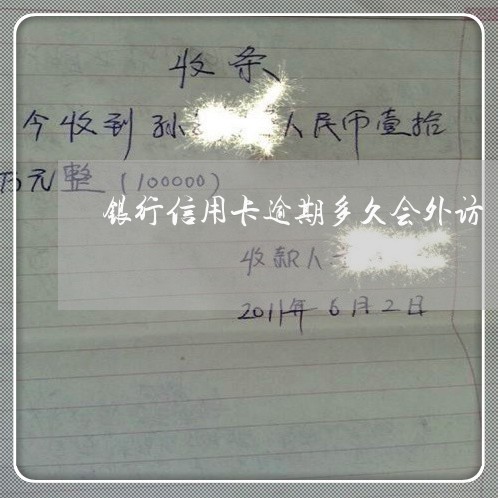 收条
今收到孙 人民币壹拾
万元整（100000）
银行信用卡逾期多久会外访
收款人
2011年6月2日